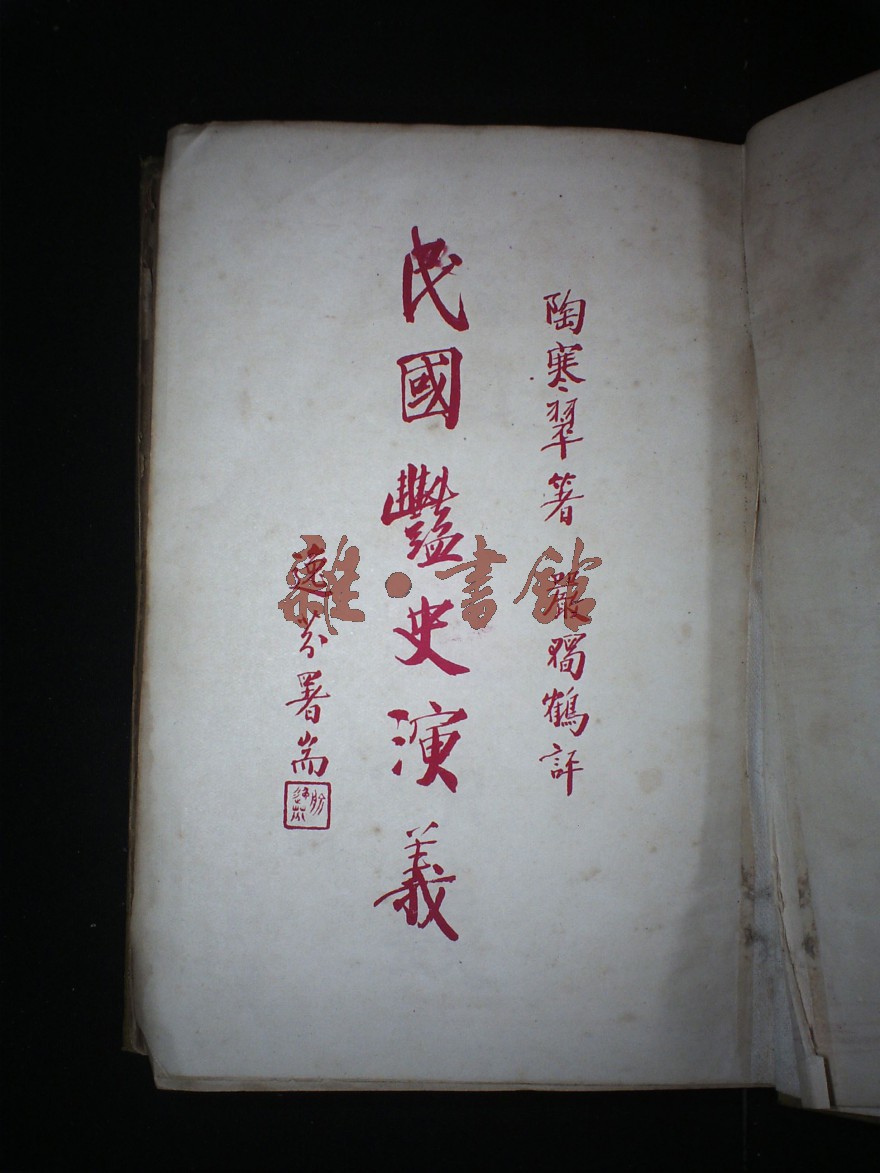 陶寒翠著 嚴獨鶴評
民國豔史演義
逸芬署耑
雜·書館